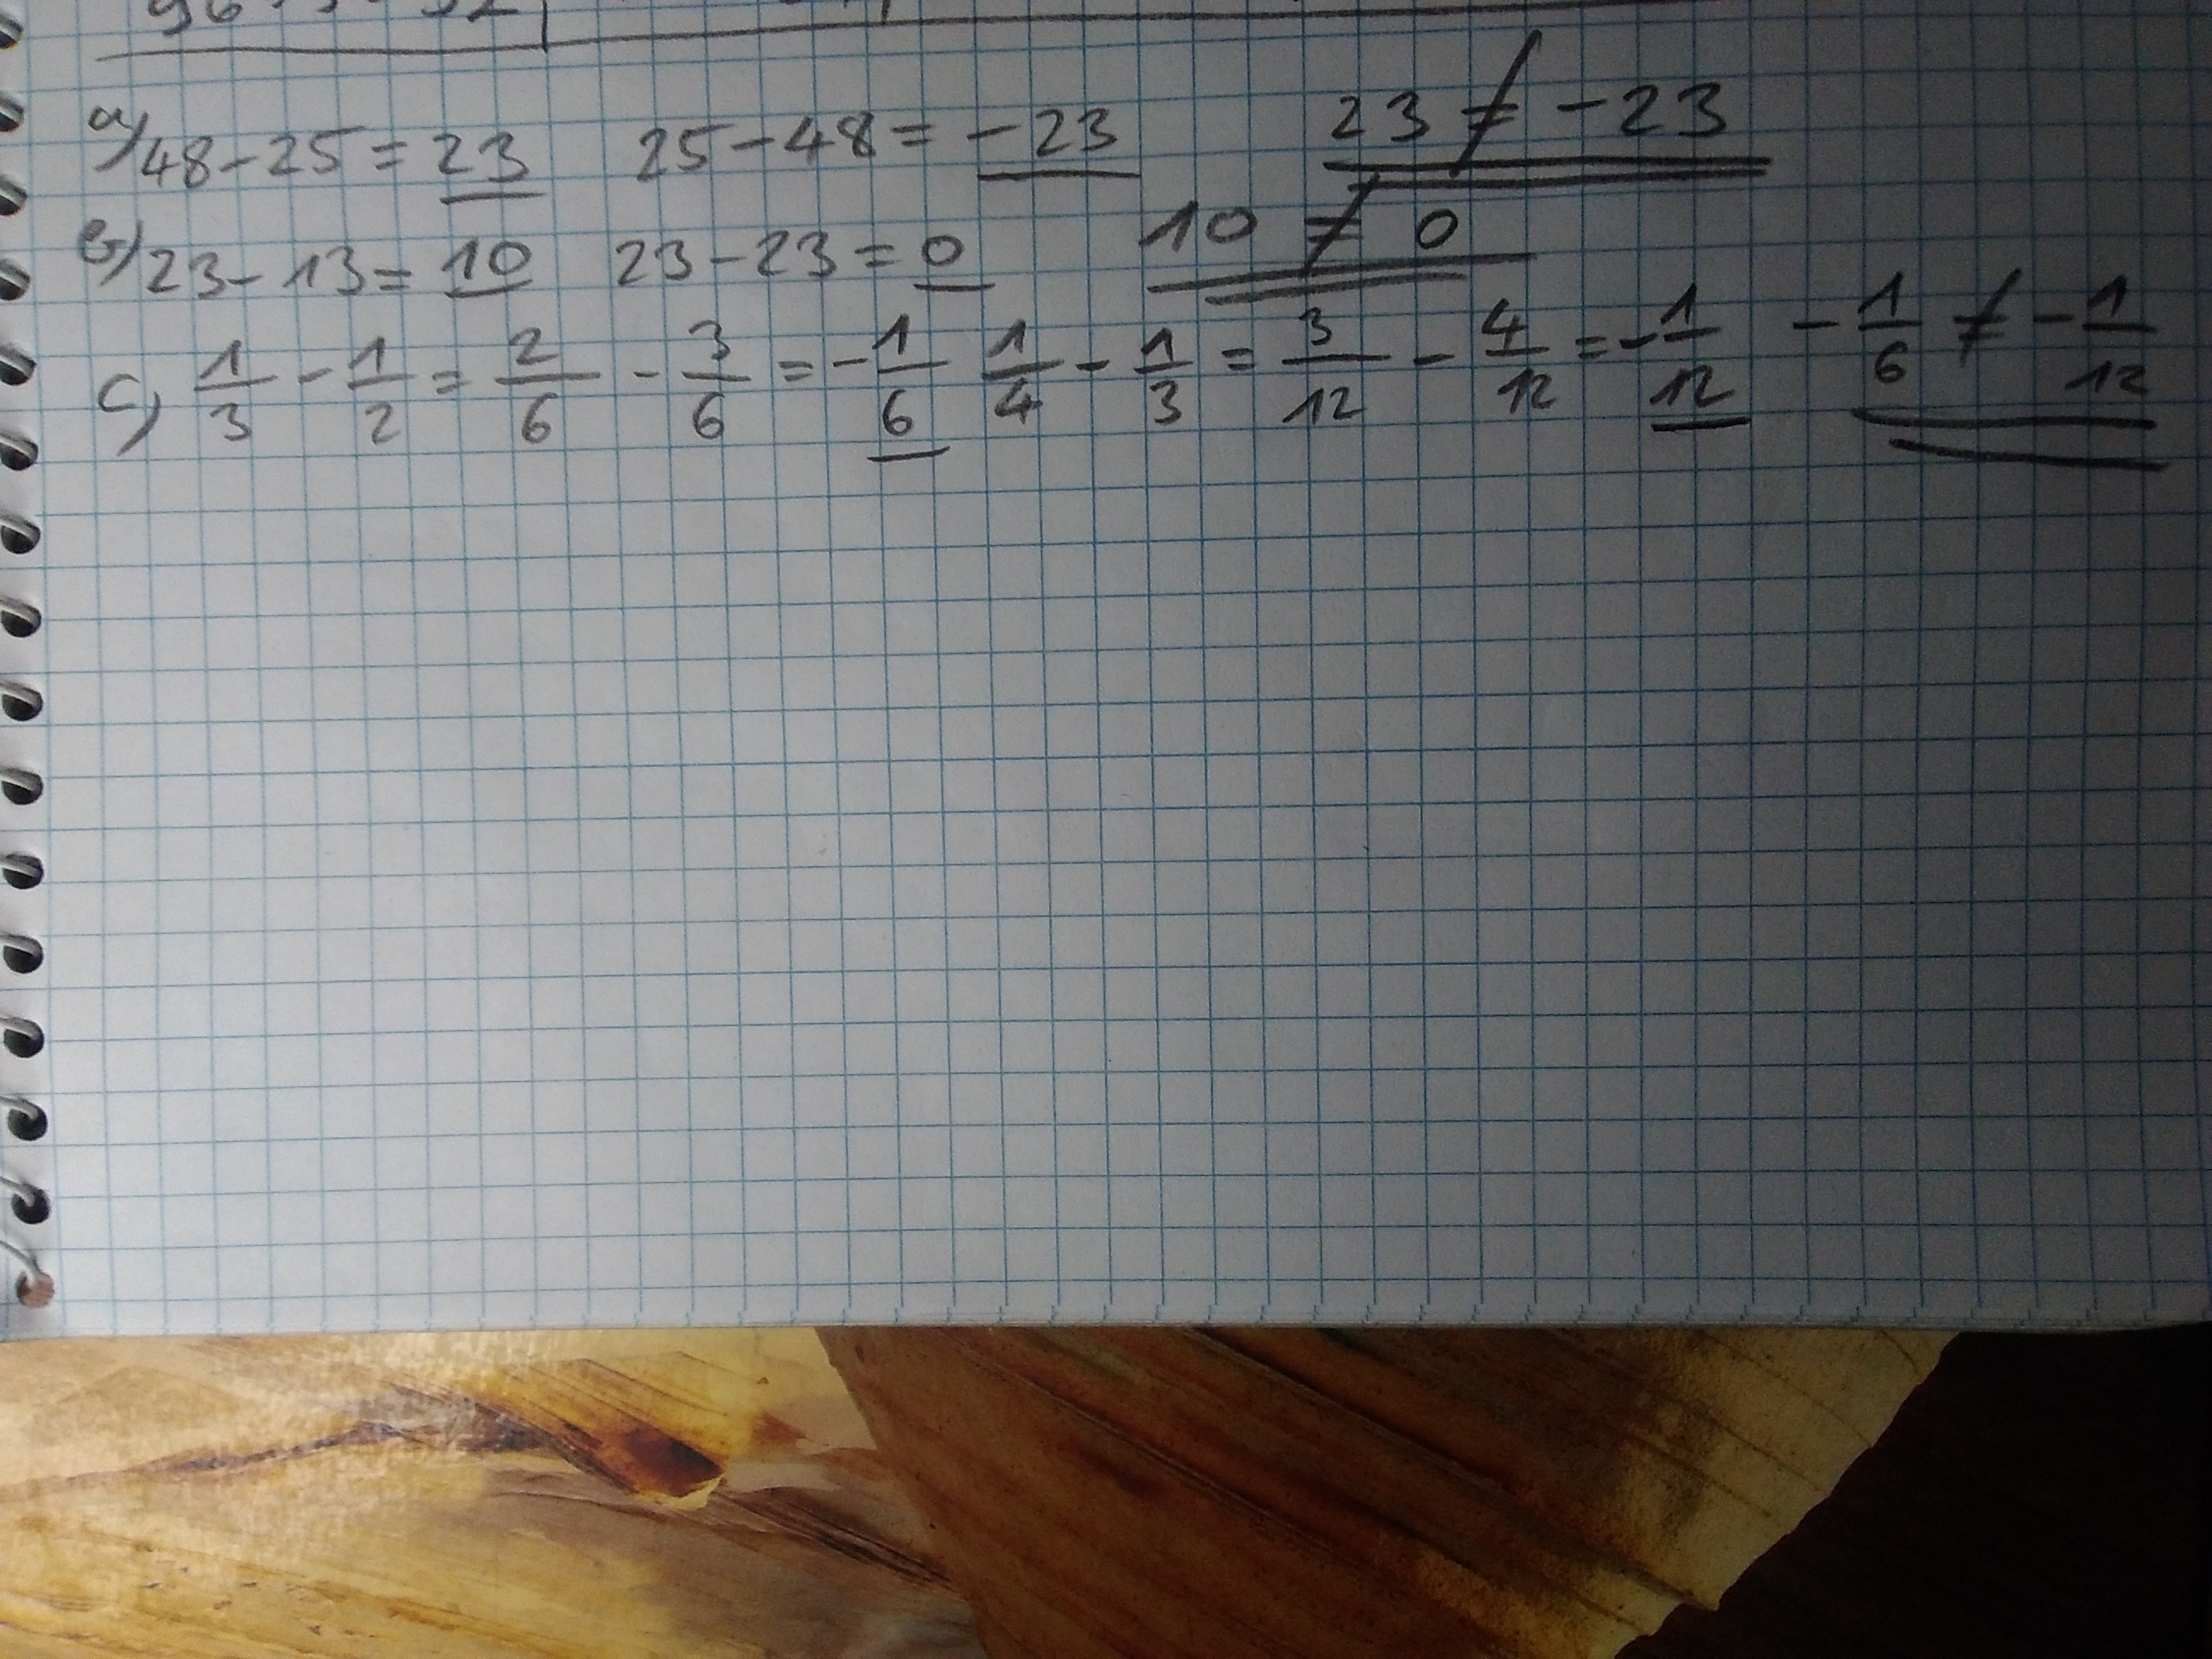 a) 48 - 25 = 23 25 - 48 = - 23 23 ≠ - 23
b) 23 - 13 = 10 23 - 23 = 0 10 ≠ 0
c) 1/3 - 1/2 = 2/6 - 3/6 = - 1/6 1/4 - 1/3 = 3/12 - 4/12 = - 1/12 - 1/6 ≠ - 1/12